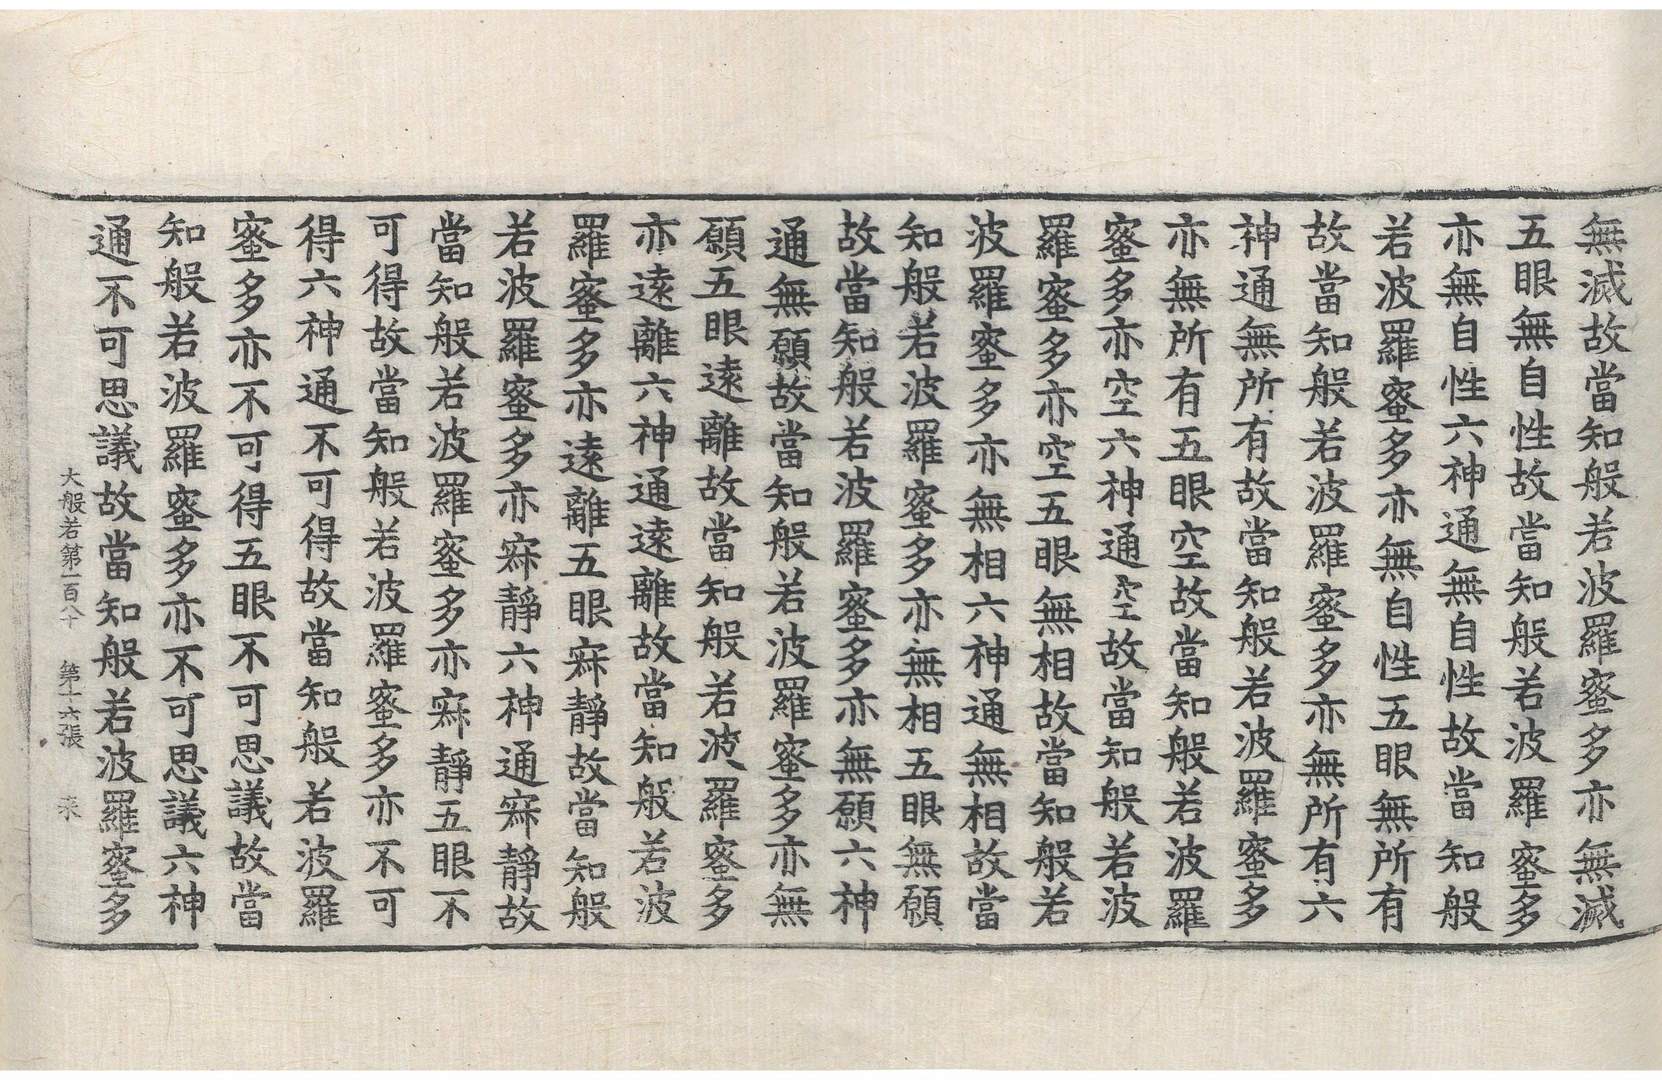 無滅故當知般若波羅蜜多亦無滅
五眼無自性故當知般若波羅蜜多
亦無自性六神通無自性故當知般
若波羅蜜多亦無自性五眼無所有
故當知般若波羅蜜多亦無所有六
神通無所有故當知般若波羅蜜多
亦無所有五眼空故當知般若波羅
蜜多亦空六神通空故當知般若波
羅蜜多亦空五眼無相故當知般若
波羅蜜多亦無相六神通無相故當
知般若波羅蜜多亦無相五眼無願
故當知般若波羅蜜多亦無願六神
通無願故當知般若波羅蜜多亦無
願五眼遠離故當知般若波羅蜜多
亦遠離六神通遠離故當知般若波
羅蜜多亦遠離五眼寂靜故當知般
若波羅蜜多亦寂靜六神通寂靜故
當知般若波羅蜜多亦寂靜五眼不
可得故當知般若波羅蜜多亦不可
得六神通不可得故當知般若波羅
蜜多亦不可得五眼不可思議故當
知般若波羅蜜多亦不可思議六神
通不可思議故當知般若波羅蜜多
大般若第一百八十 第十六張 来